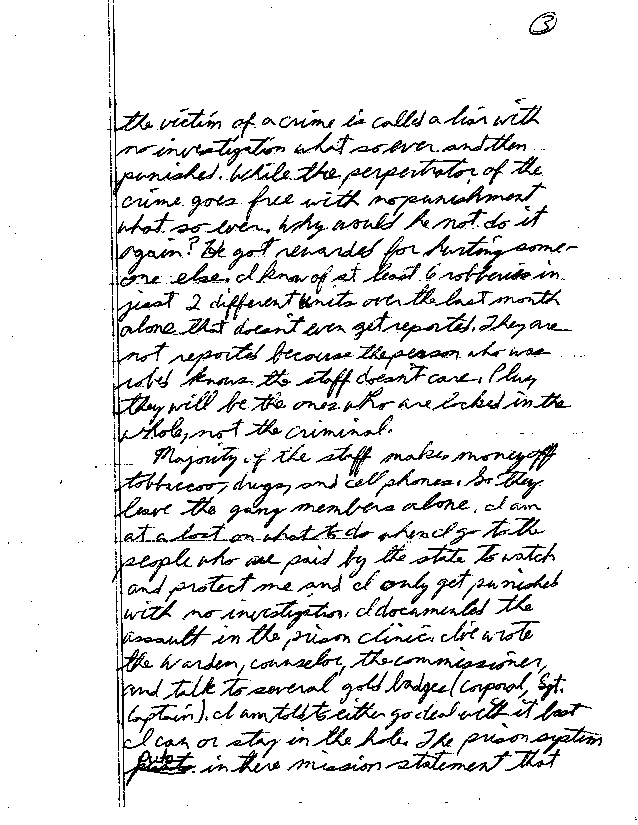 3
the victim of a crime is called a liar with
no investigation what so ever and then
punished. While the perpetrator of the
crime goes free with no punishment
what so ever. Why would he not do it
again? He got rewarded for hurting some-
one else. I know of at least 6 robberies in
just 2 different units over the last month
alone that doesn't even get reported. They are
not reported because the person who was
robed knows the staff doesn't care. Plus
they will be the ones who are locked in the
whole, not the criminal.
Majority of the staff makes money off
tobbaccoo, drugs, and cell phones. So they
leave the gang members alone. I am
at a lost on what to do when I go to the
people who are paid by the state to watch
and protect me and I only get punished
with no investigation. I documented the
assault in the prison clinic. I've wrote
the Warden, counselor, the commissioner,
and talk to several gold badges (Corporal, Sgt.
Captain). I am told to either go deal with it best
I can or stay in the hole. The prison system
puts in there mission statement that